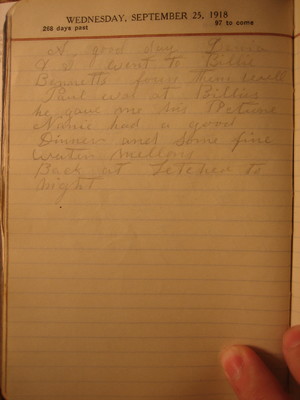 WEDNESDAY, SEPTEMBER 25, 1918
268 days past 97 to come
A good day
& I went to Billie
Bennetts from there
Paul was at Billies
he gave me his Picture
Annie had a good
Dinner and some fine
water mellons
Back at to
night